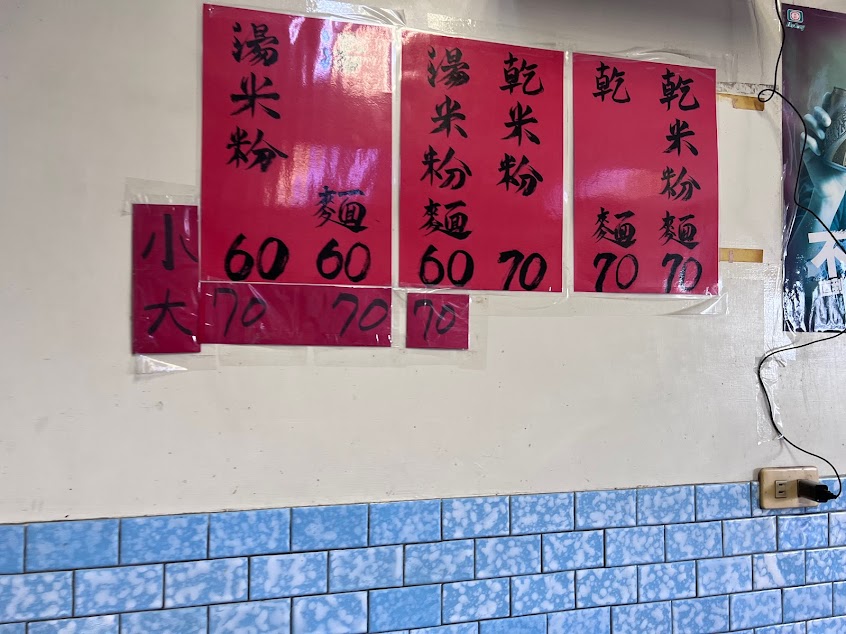 湯米粉 60
湯 麵 60
湯米粉麵 60
乾米粉 70
乾 麵 70
乾米粉麵 70
小
大 70 70 70